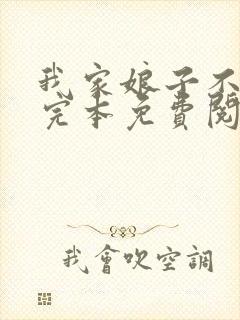 我家娘子不
完本免費閱
我會吹空調